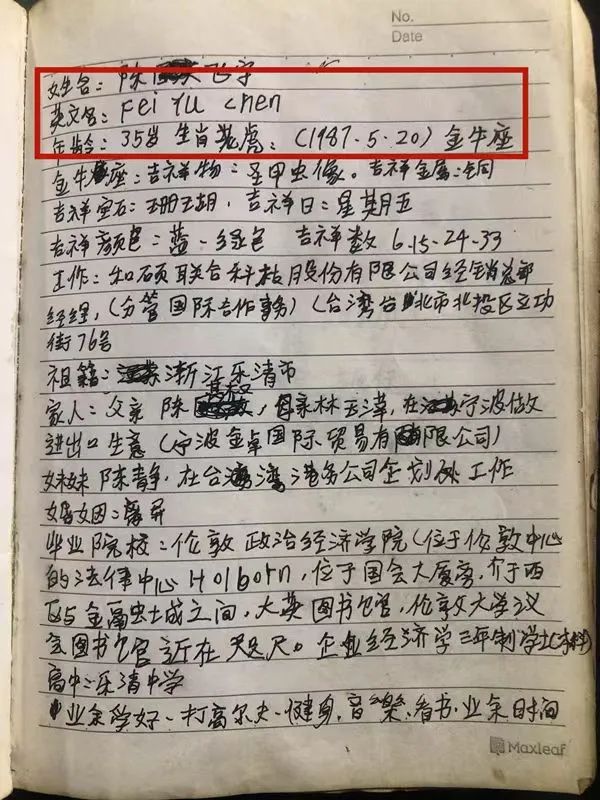 No.
Date
姓名：陈飞宇
英文名：Fei Yu Chen
年龄：35岁 生肖老虎：（1987.5.20）金牛座
金牛座：吉祥物：圣甲虫像。吉祥金属：铜
吉祥宝石：珊瑚，吉祥日：星期五
吉祥颜色：蓝-绿色 吉祥数 6.15-24-33
工作：和硕联合科技股份有限公司经销总部
经理，（分管国际合作事务）（台湾台北市北投区立功
街76号
祖籍：浙江乐清市
家人：父亲 陈，母亲林玉萍，在宁波做
进出口生意（宁波金卓国际贸易有限公司）
妹妹 陈静，在台湾港务公司企划处工作
婚姻：离异
毕业院校：伦敦政治经济学院（位于伦敦中心
的法律中心Holborn，位于国会大厦旁，介于西
区与金融城之间，大英图书馆，伦敦大学议
会图书馆近在咫尺。企业经济学三年制学士（本科）
高中：乐清中学
业余爱好-打高尔夫-健身，音樂，看书，业余时间
Maxleaf